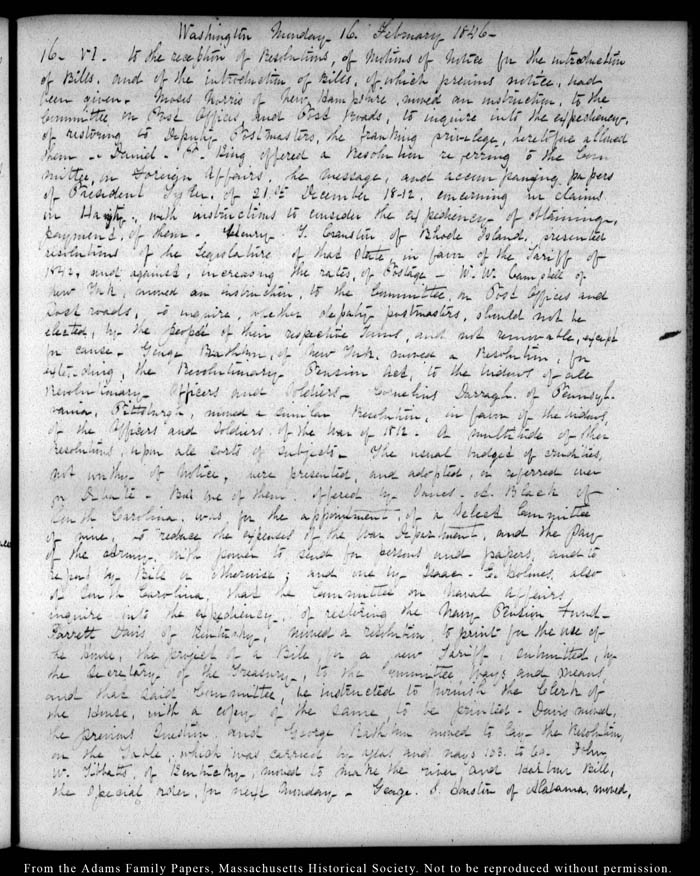 Washington Monday 16. February 1846-
16. VI. to the reception of Resolutions, of Motions of Notice for the introduction
of Bills, and of the introduction of Bills, of which previous notice, had
been given. Moses Norris of New Hampshire, moved an instruction, to the
Committee on Post Offices, and Post roads, to inquire into the expediency,
of restoring to Deputy Postmasters, the franking privilege, heretofore allowed
them - Daniel P. King offered a Resolution referring to the Com
mittee, on Foreign Affairs, the message, and accompanying papers
of President Tyler, of 21. December 1842. concerning our claims
in Hayti, with instructions to consider the expediency of obtaining,
payment, of them - Henry Y. Cranston of Rhode Island, presented
resolutions of the Legislature of that State, in favor of the Tariff of
1842, and against, increasing the rates, of Postage - W. W. Campbell of
New York, moved an instruction, to the Committee, on Post Offices and
Post roads, to inquire, whether deputy postmasters, should not be
elected, by the people of their respective Towns, and not removable, except
for cause - George Rathbun, of New York, moved a Resolution, for
extending, the Revolutionary Pension Act, to the widows of all
Revolutionary Officers and Soldiers - Cornelius Darragh, of Pennsyl-
vania, Pittsburgh, moved a similar Resolution, in favor of the widows,
of the Officers and Soldiers, of the War of 1812 - A multitude of other
resolutions, upon all sorts of subjects - The usual budget of crudities,
not worthy of Notice, were presented, and adopted, or referred over
for Debate - But one of them, offered by James A. Black of
South Carolina, was for the appointment, of a Select Committee
of nine, to reduce the expenses of the War Department, and the Pay
of the Army, with power to send for persons and papers, and to
report by Bill or otherwise; and one by Isaac E. Holmes, also
of South Carolina, that the Committee on Naval Affairs,
inquire into the expediency, of restoring the Navy Pension Fund -
Garrett Davis of Kentucky, moved a resolution, to print for the use of
the House, the project of a Bill, for a new Tariff, submitted, by
the Secretary of the Treasury, to the Committee, Ways and Means,
and that said Committee, be instructed to furnish the Clerk of
the House, with a copy of the same, to be printed - Davis moved,
the previous Question, and George Rathbun moved to lay the Resolution,
on the Table, which was carried by yeas and nays 103. to 60. John
W. Tibbatts, of Kentucky, moved to make the river, and Harbour Bill,
the special order, for next Monday - George. S. Houston of Alabama, moved,
From the Adams Family Papers, Massachusetts Historical Society. Not to be reproduced without permission.